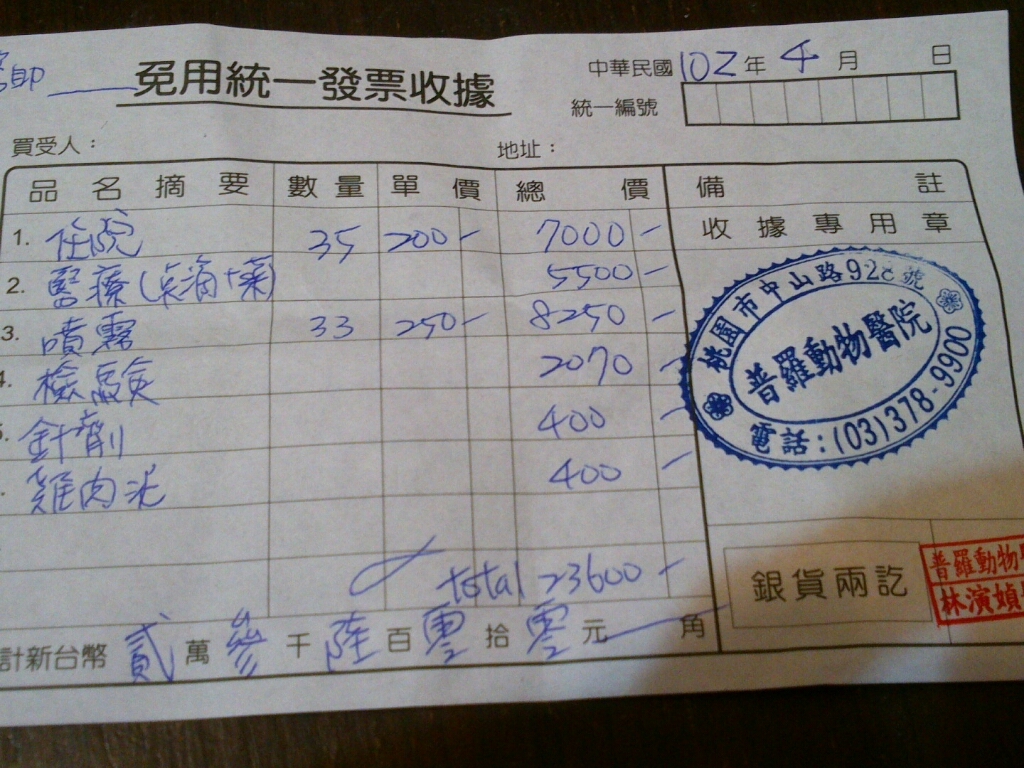 免用統一發票收據
中華民國102年4月 日
統一編號
買受人： 地址：
品名摘要 數量 單價 總價 備註
收據專用章
1. 住院 35 200- 7000-
2. 醫療(点滴+葯) 5500-
3. 噴霧 33 250- 8250-
檢驗 2070-
針劑 400-
雞肉泥 400-
total 23600-
計新台幣 貳萬參千陸百零拾零元 角
桃園市中山路928號
普羅動物醫院
電話：(03)378-9900
銀貨兩訖
普羅動物
林演媜